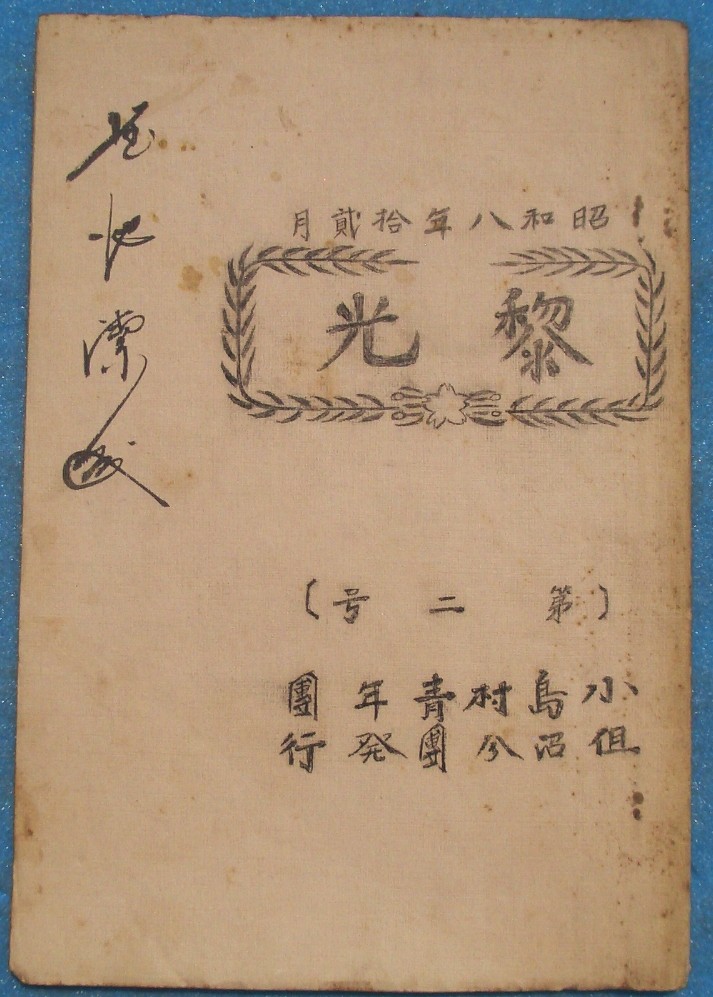 昭和八年拾貳月
黎光
（第二号）
小島村青年團
但沼分團発行